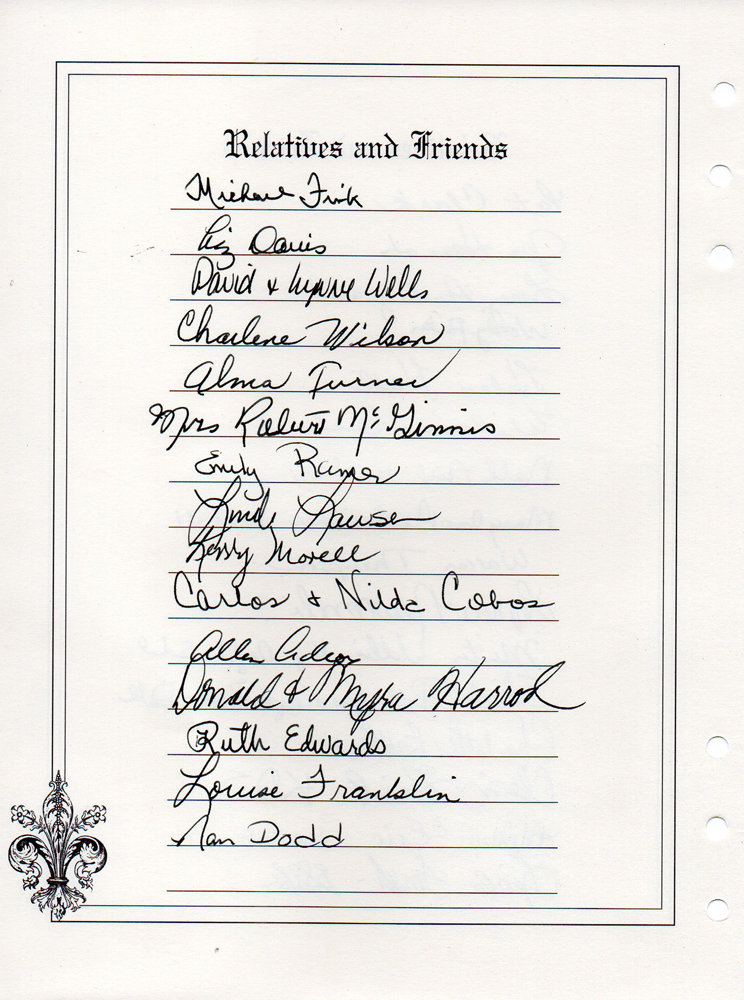 Relatives and Friends
Michael Fink
Liz Davis
David & Lynne Wells
Charlene Wilson
Alma Turner
Mrs Robert McGinnis
Emily Ramer
Linda Lawson
Kerry Morell
Carlos & Nilda Cobos
Allen
Donald & Myra Harrod
Ruth Edwards
Louise Franklin
Nan Dodd